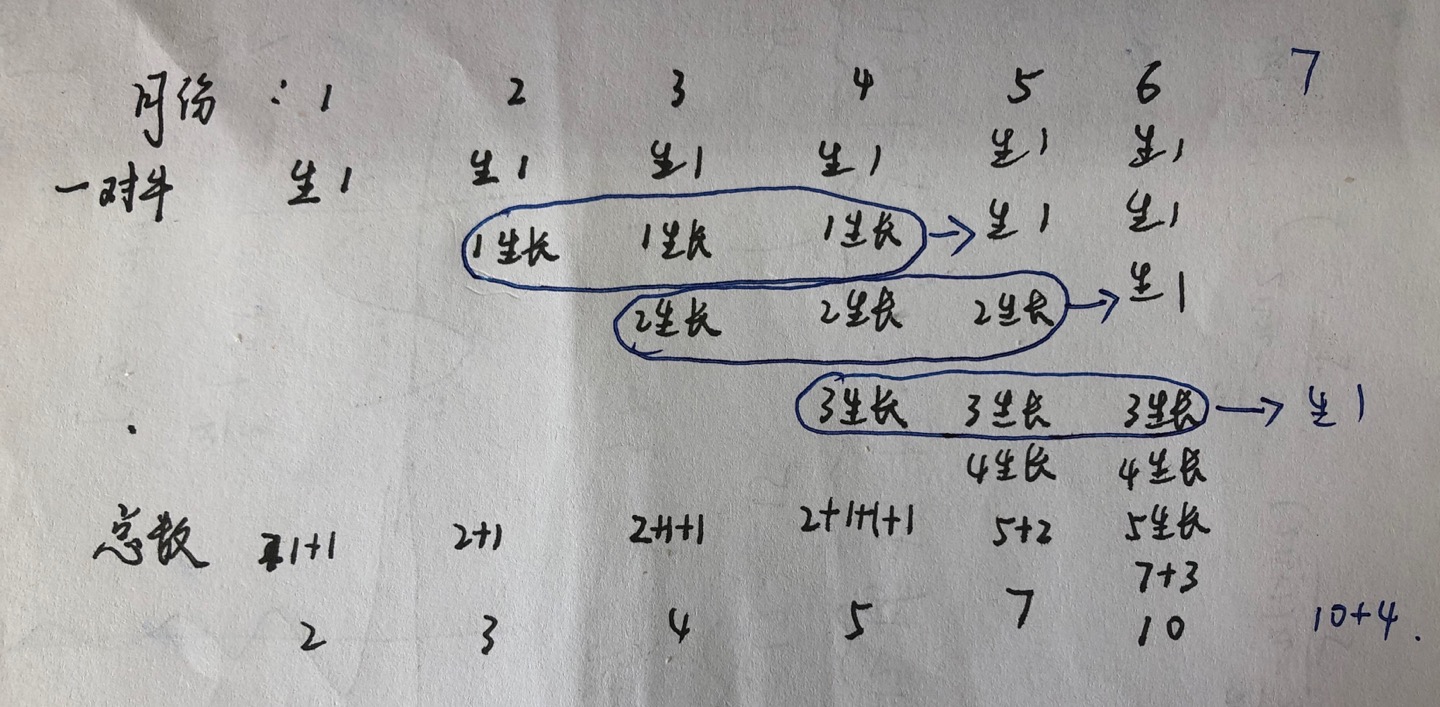 月份：1 2 3 4 5 6 7
一对牛 生1 生1 生1 生1 生1 生1
1生长 1生长 1生长 → 生1 生1
2生长 2生长 2生长 → 生1
3生长 3生长 3生长 → 生1
4生长 4生长
总数 1+1 2+1 2+1+1 2+1+1+1 5+2 5生长
7+3
2 3 4 5 7 10 10+4.